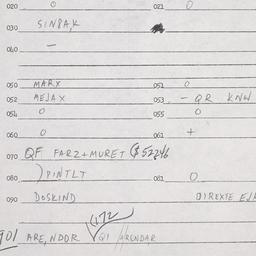 020 0 021 0
030 SINBAK
040 —
050 MARX 051 0
052 MEJAX 053 - QR KNW
054 0 055 0
060 0 061 +
070 QF FARZ+MURET
080 )PINTLT 081 0
090 DOSKIND DIREXTE
901 ARE, NDDR √172 QI //ARENDAR